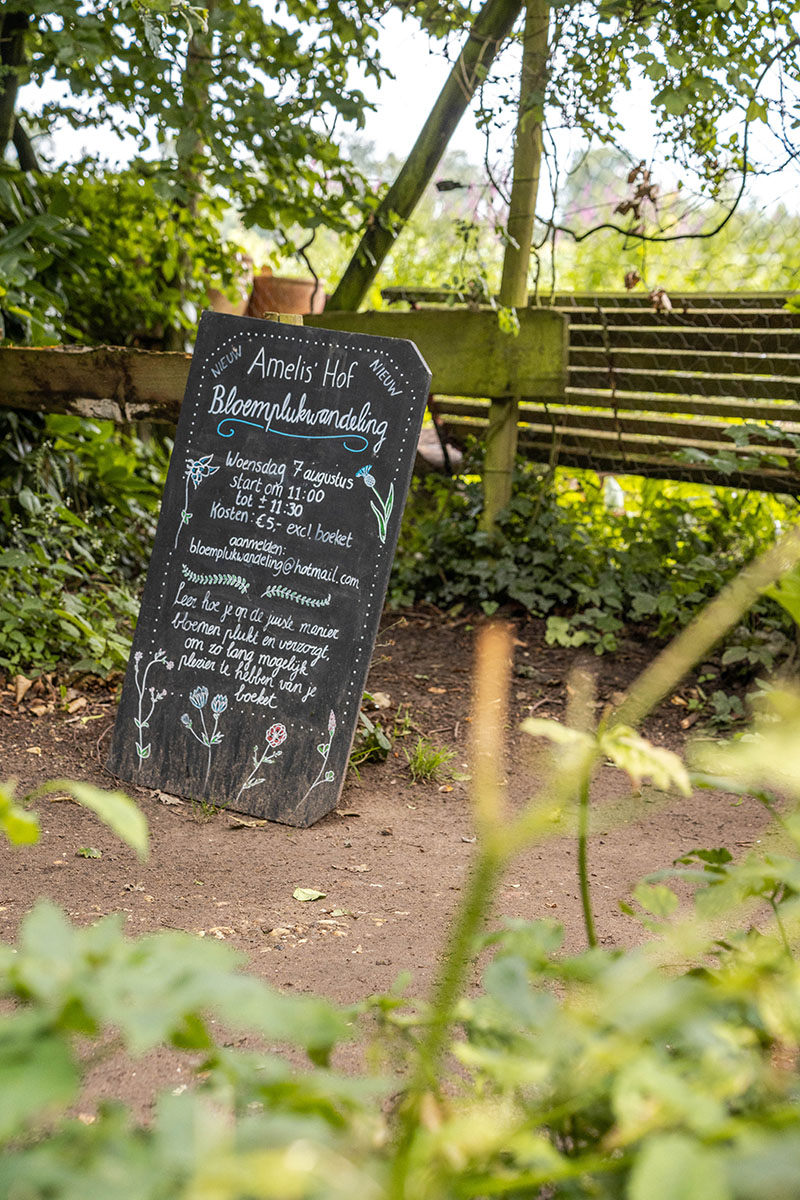 NIEUW Amelis' Hof NIEUW
Bloemplukwandeling
Woensdag 7 augustus
start om 11:00
tot ± 11:30
Kosten: €5,- excl boeket
aanmelden:
bloemplukwandeling@hotmail.com
Leer hoe je op de juiste manier
bloemen plukt en verzorgt,
om zo lang mogelijk
plezier te hebben van je
boeket